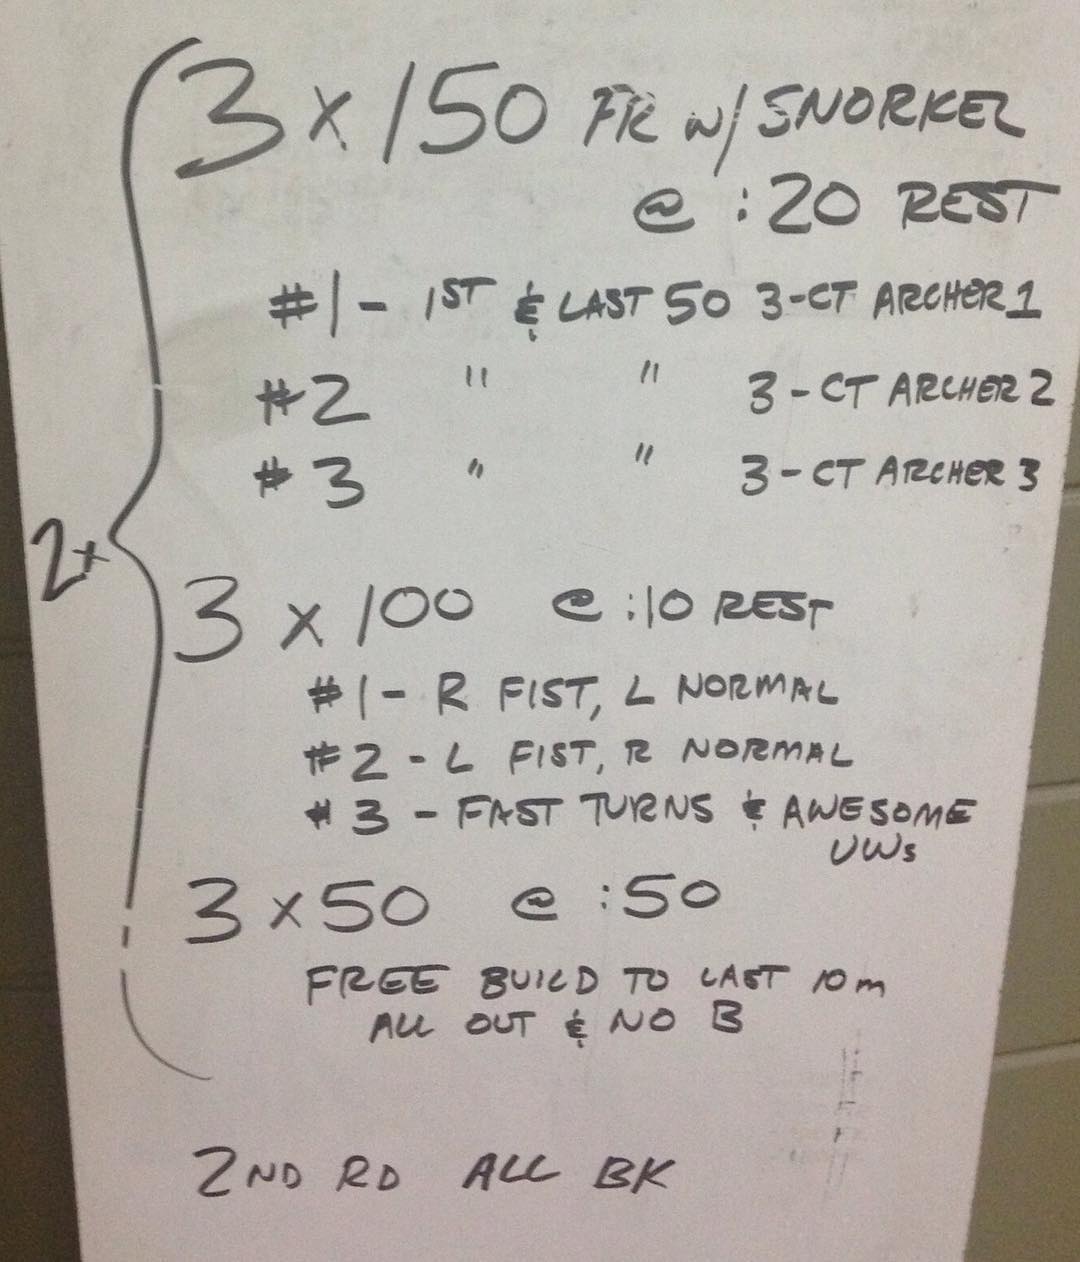 3 x 150 FR w/ SNORKEL
@ :20 REST
#1 - 1ST & LAST 50 3-CT ARCHER 1
#2 " " 3-CT ARCHER 2
#3 " " 3-CT ARCHER 3
2x
3 x 100 @ :10 REST
#1 - R FIST, L NORMAL
#2 - L FIST, R NORMAL
#3 - FAST TURNS & AWESOME
UWs
3 x 50 @ :50
FREE BUILD TO LAST 10m
ALL OUT & NO B
2ND RD ALL BK